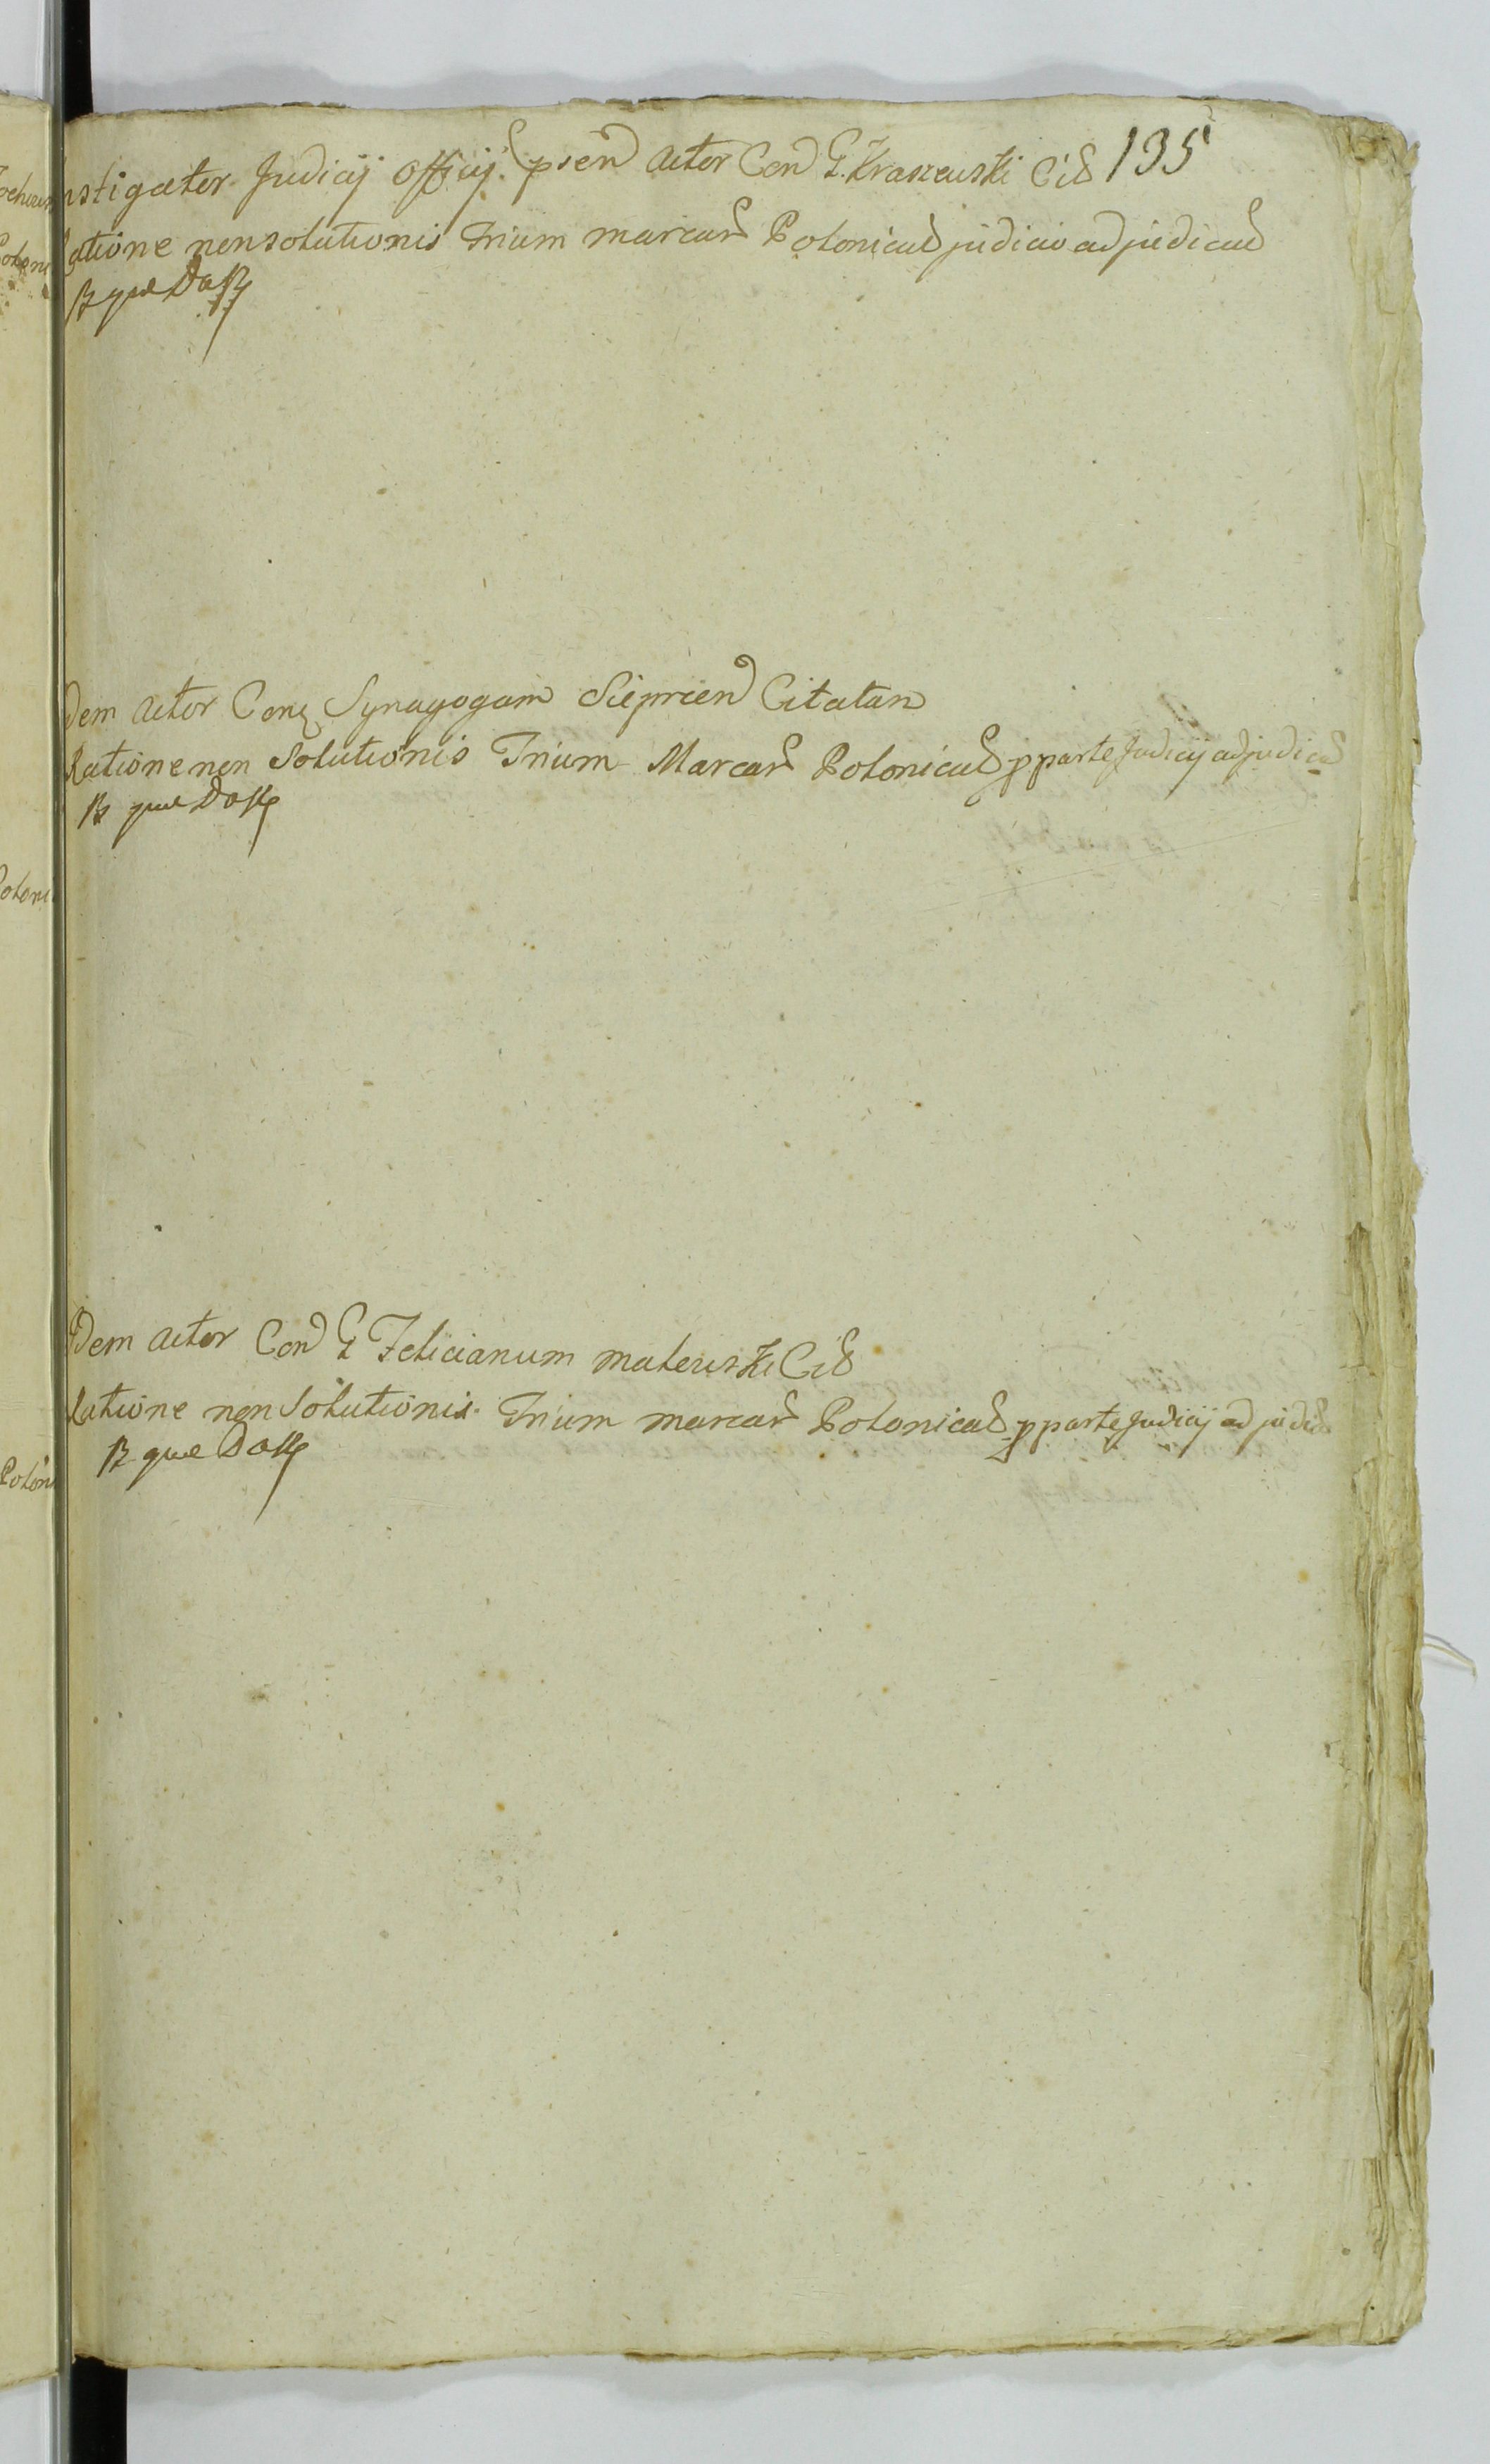 Instigator Judicij Officij psen Actor Con G. Kraszewski Cit 135
Ratione non solutionis Trium marcar Polonical judicio adjudicat
Idem Actor Con Synagogam Sieprcen Citatan
Ratione non Solutionis Trium Marcar Polonical p parte Judicij adjudicat
Idem Actor Con G Felicianum Maleuski Cit
Ratione non Solutionis Trium marcar Polonical p parte Judicij adjudic